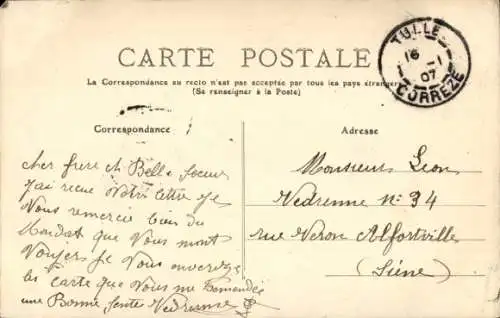 CARTE POSTALE
La Correspondance au recto n'est pas acceptée par tous les pays étrangers
(Se renseigner à la Poste)
TULLE
16 -1
07
CORREZE
Correspondance
cher frere et Belle Soeur
J'ai recue Votre lettre Je
Vous remercie bien du
Mandat que Vous
Je Vous
les carte que Vous me Demandée
une Bonne Sente Vedrenne
Adresse
Monsieur Leon
Vedrenne N° 34
rue Veron Alfortville
(Siéne)